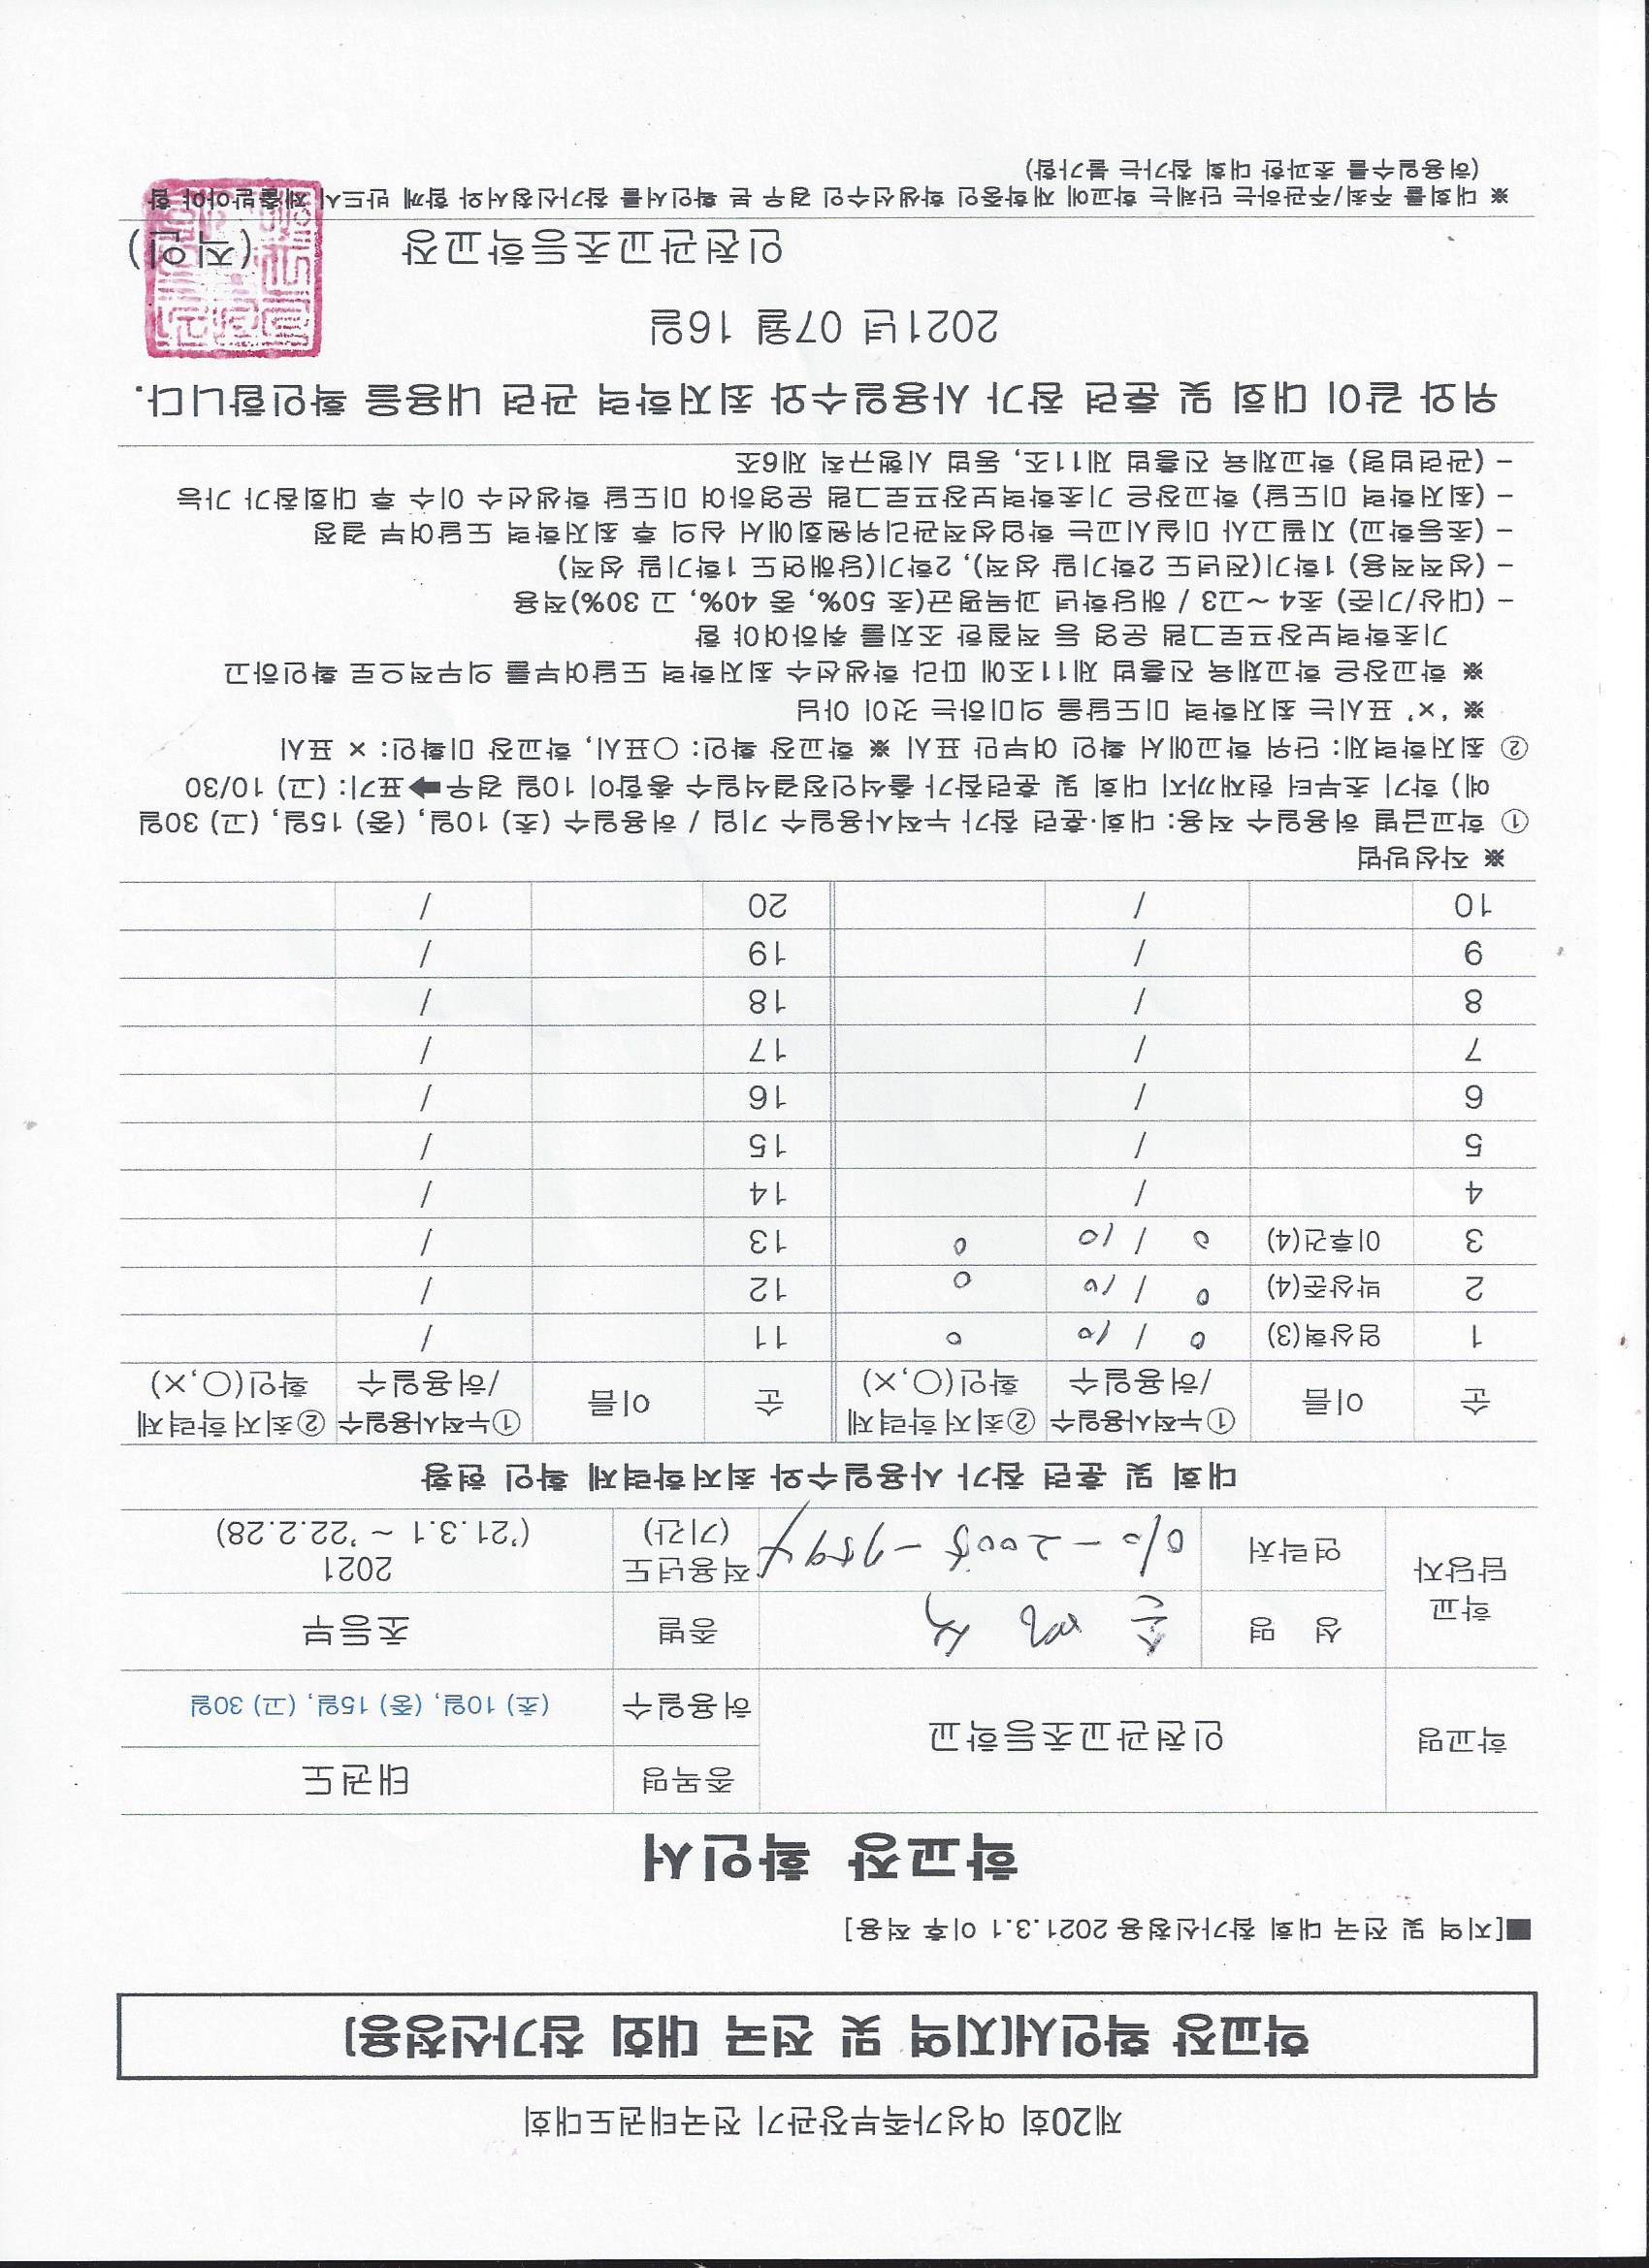 제20회 여성가족부장관기 전국태권도대회
학교장 확인서(지역 및 전국 대회 참가신청용)
■[지역 및 전국 대회 참가신청용 2021.3.1 이후 적용]
학교장 확인서
학교명 인천관교초등학교 종목명 태권도
허용일수 (초) 10일, (중) 15일, (고) 30일
학교 담당자 성 명 종별 초등부
연락처 적용년도 (기간) 2021 ('21.3.1 ~ '22.2.28)
대회 및 훈련 참가 사용일수와 최저학력제 확인 현황
순 이름 ①누적사용일수 /허용일수 ②최저학력제 확인(○,×) 순 이름 ①누적사용일수 /허용일수 ②최저학력제 확인(○,×)
1 엄상혁(3) 0 / 10 0 11 /
2 박상준(4) 0 / 10 0 12 /
3 이후건(4) 0 / 10 0 13 /
4 / 14 /
5 / 15 /
6 / 16 /
7 / 17 /
8 / 18 /
9 / 19 /
10 / 20 /
※ 작성방법
① 학교급별 허용일수 적용: 대회·훈련 참가 누적사용일수 기입 / 허용일수 (초) 10일, (중) 15일, (고) 30일
예) 학기 초부터 현재까지 대회 및 훈련참가 출석인정결석일수 총합이 10일 경우➡표기: (고) 10/30
② 최저학력제: 단위 학교에서 확인 여부만 표시 ※ 학교장 확인: ○표시, 학교장 미확인: × 표시
※ '×' 표시는 최저학력 미도달을 의미하는 것이 아님
※ 학교장은 학교체육 진흥법 제11조에 따라 학생선수 최저학력 도달여부를 의무적으로 확인하고
기초학력보장프로그램 운영 등 적절한 조치를 취하여야 함
- (대상/기준) 초4 ~고3 / 해당학년 과목평균(초 50%, 중 40%, 고 30%)적용
- (성적적용) 1학기(전년도 2학기말 성적), 2학기(당해연도 1학기말 성적)
- (초등학교) 지필고사 미실시교는 학업성적관리위원회에서 심의 후 최저학력 도달여부 결정
- (최저학력 미도달) 학교장은 기초학력보장프로그램 운영하여 미도달 학생선수 이수 후 대회참가 가능
- (관련법령) 학교체육 진흥법 제11조, 동법 시행규칙 제6조
위와 같이 대회 및 훈련 참가 사용일수와 최저학력 관련 내용을 확인합니다.
2021년 07월 16일
인천관교초등학교장 (직인)
※ 대회를 주최/주관하는 단체는 학교에 재학중인 학생선수인 경우 본 확인서를 참가신청서와 함께 반드시 제출받아야 함
(허용일수를 초과한 대회 참가는 불가함)